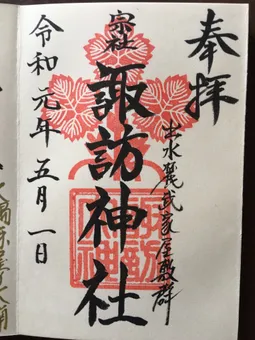 奉拝
出水麓武家屋敷群
宗社
諏訪神社
令和元年五月一日